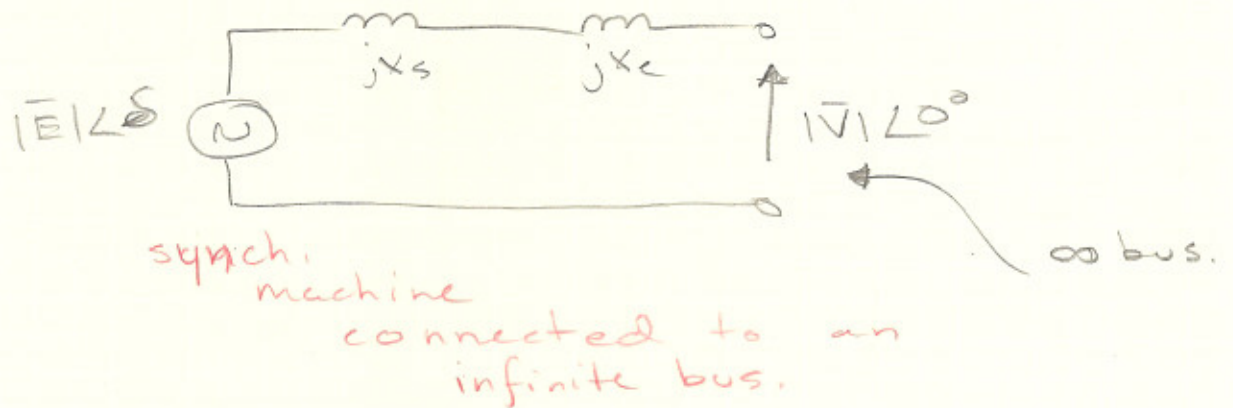 jXs jXe
|E̅|∠δ |V̅|∠0°
∞ bus.
synch.
machine
connected to an
infinite bus.